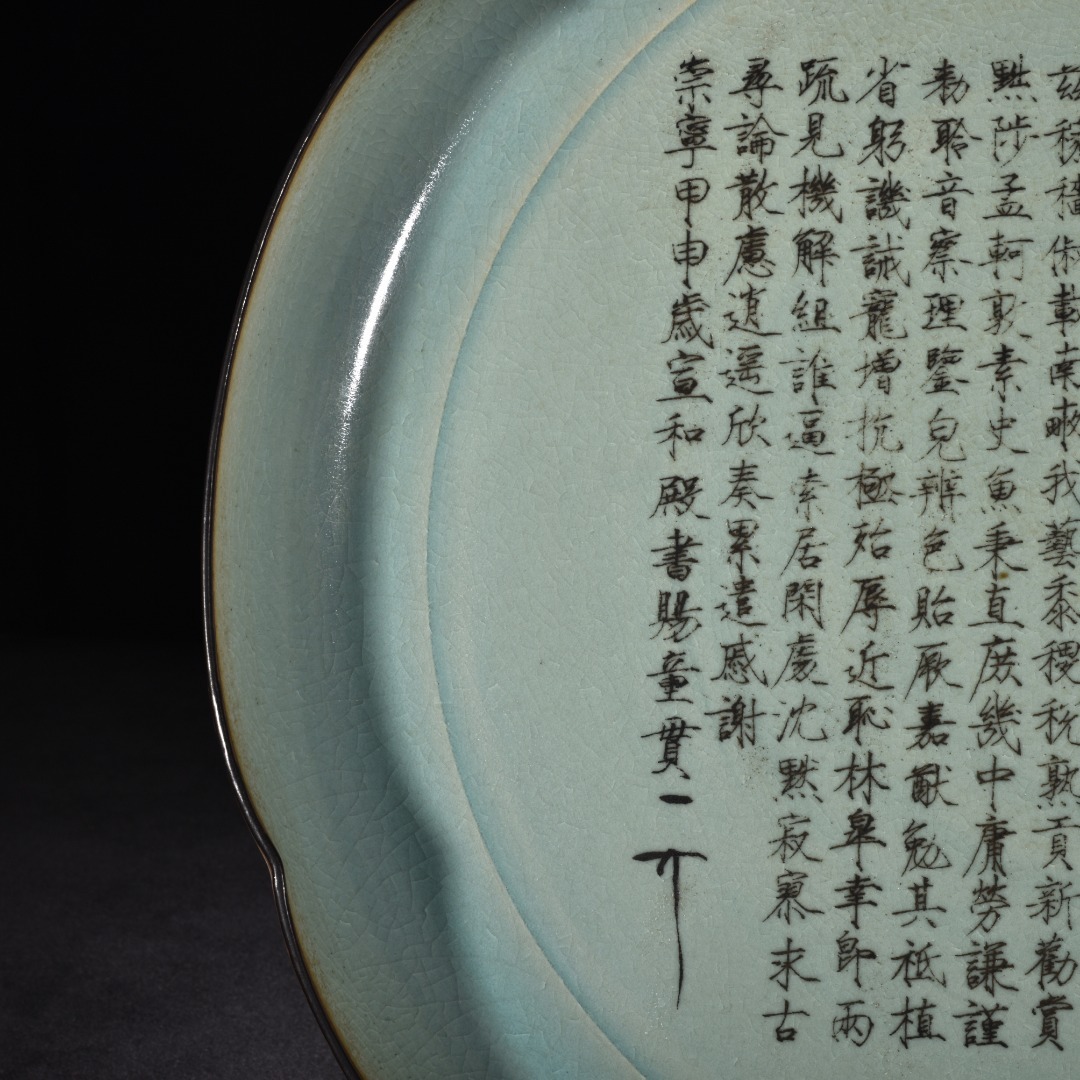 茲稼穡俶載南畝我藝黍稷稅熟貢新勸賞
黜陟孟軻敦素史魚秉直庶幾中庸勞謙謹
勑聆音察理鑒皃辨色貽厥嘉猷勉其祗植
省躬譏誡寵增抗極殆辱近恥林皋幸即兩
疏見機解組誰逼索居閑處沈默寂寥求古
尋論散慮逍遥欣奏累遣慼謝
崇寧甲申歲宣和殿書賜童貫